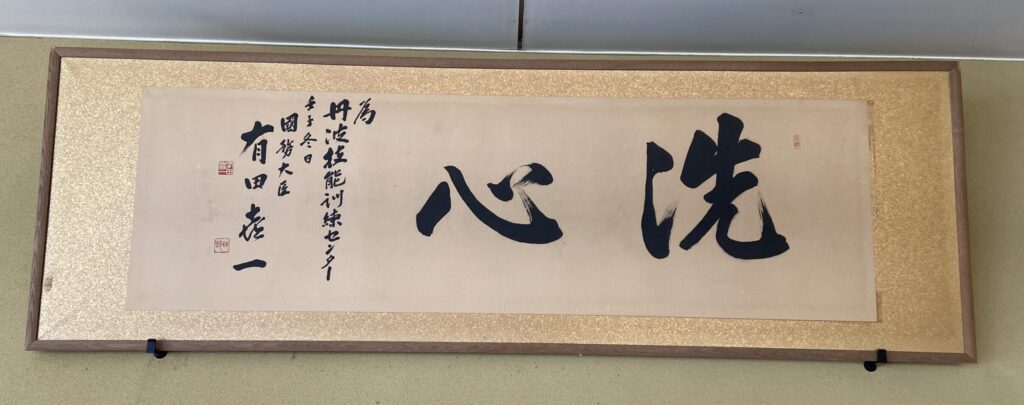 洗心
為
丹波技能訓練センター
壬子冬日
國務大臣
有田喜一